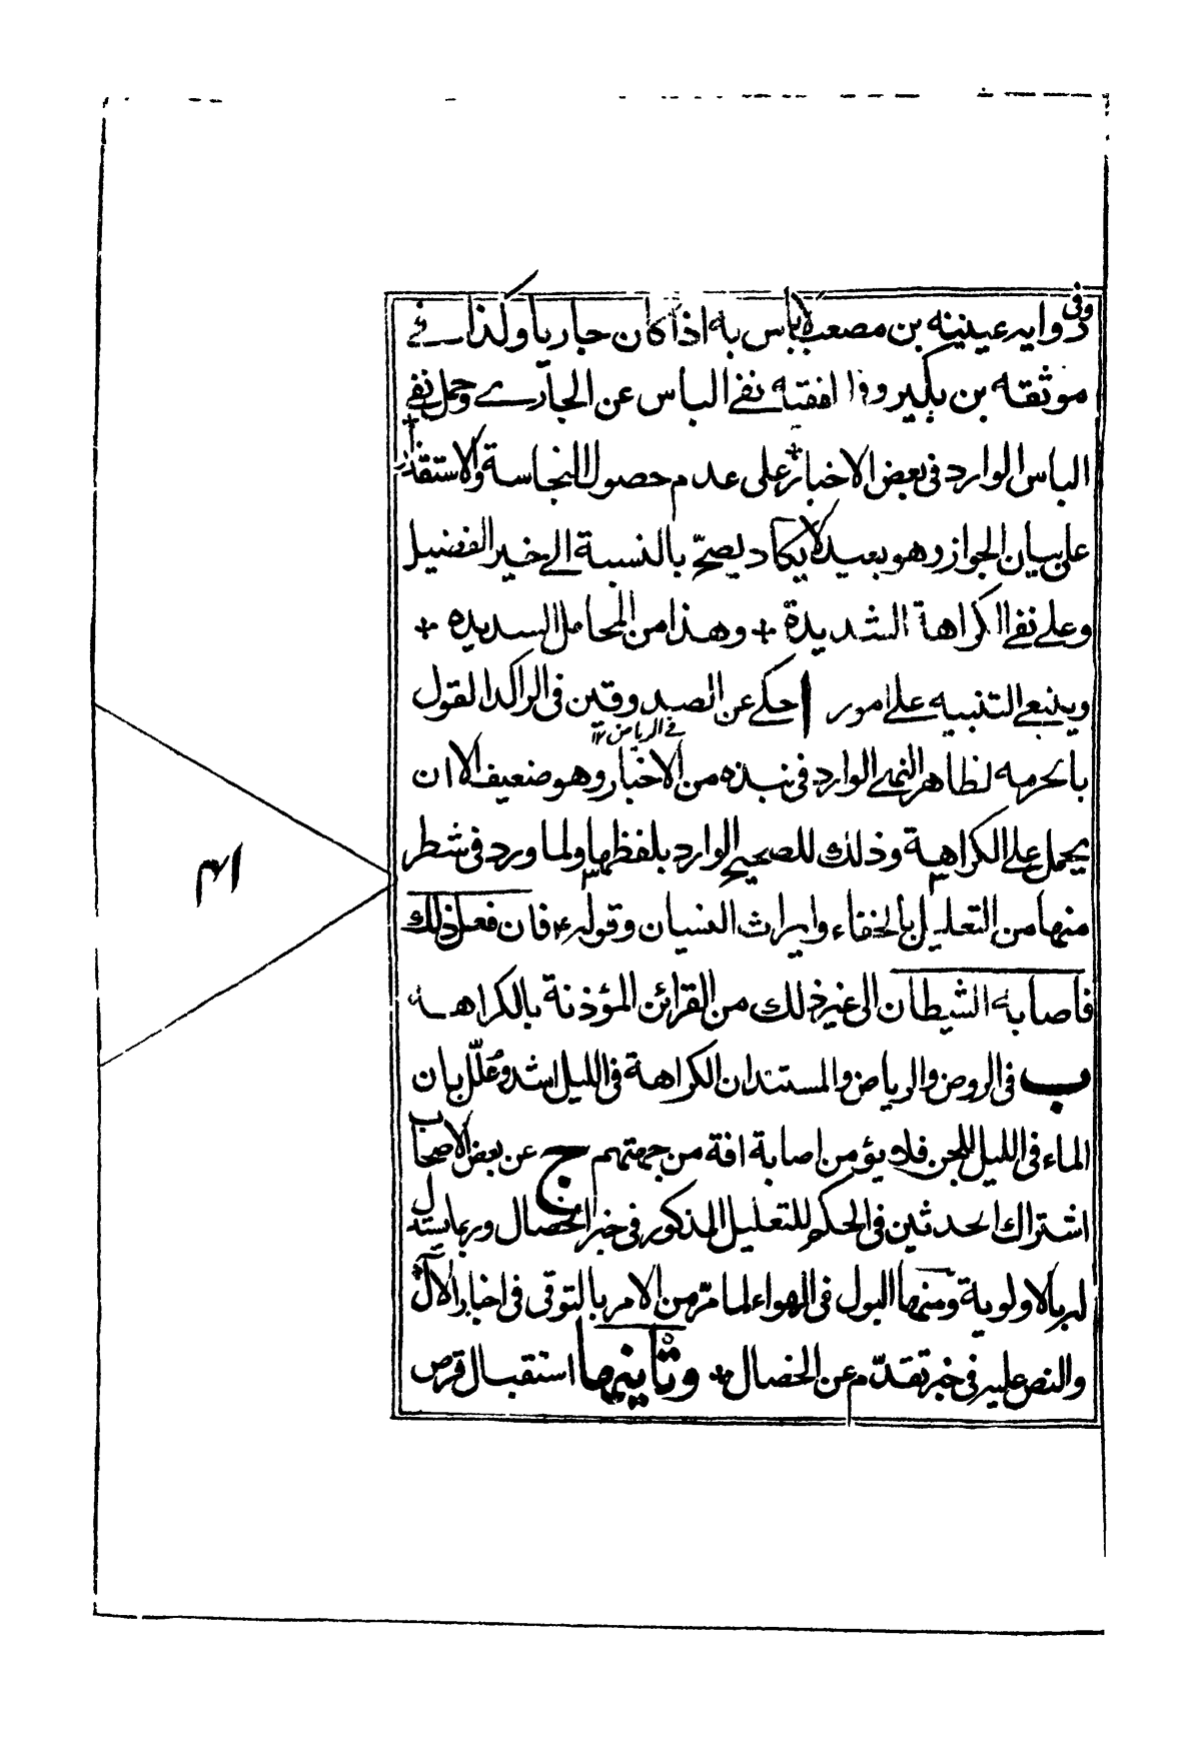 وفى رواية عيينة بن مصعب لاباس به اذا كان جاريا وكذا في
موثقه بن بكير وفا افقته نفي الباس عن الجارے وحمل نفي
الباس الوارد فى بعض الاخبار على عدم حصول النجاسة والاستقذار
على بيان الجواز وهو بعيد لا يكاد يصحّ بالنسبة الى خبر الفضيل
وعلى نفي الكراهة الشديدة وهذا من المحامل السديده
وينبغي التنبيه على امور ا حكي عن الصدوقين فى الراكد القول
في الرياض ١٢
بالحرمه لظاهر النهي الوارد فى نبذه من الاخبار وهو ضعيف الا ان
يحمل على الكراهية وذلك للصحيح الوارد بلفظها ولما ورد فى شطر
منها من التعليل بالخفاء وايراث النسيان وقوله ع فان فعل ذلك
فاصابه الشيطان الى غير ذلك من القرائن المؤذنة بالكراهه
ب فى الروض والرياض والمستند ان الكراهة فى الليل اشد وعلّل بان
الماء فى الليل للجن فلا يؤمن اصابة افة من جهتهم ج عن بعض الاصحاب
اشتراك الحدثين فى الحكم للتعليل المذكور فى خبر الخصال وربما يستدل
له بالاولوية ومنها البول فى الهواء لما مرّ من الامر بالتوقى فى اخبار الآل
والنص عليه فى خبر تقدّم عن الخصال وثانيها استقبال قرص
٤١